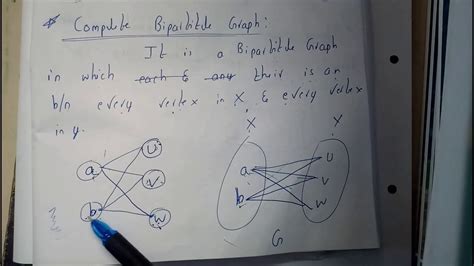 * Complete Bipartitde Graph:
It is a Bipartitde Graph
in which each & any their is an
b/n every vertex in X & every vertex
in y.
X Y
a u v w
b
a b u v w
G